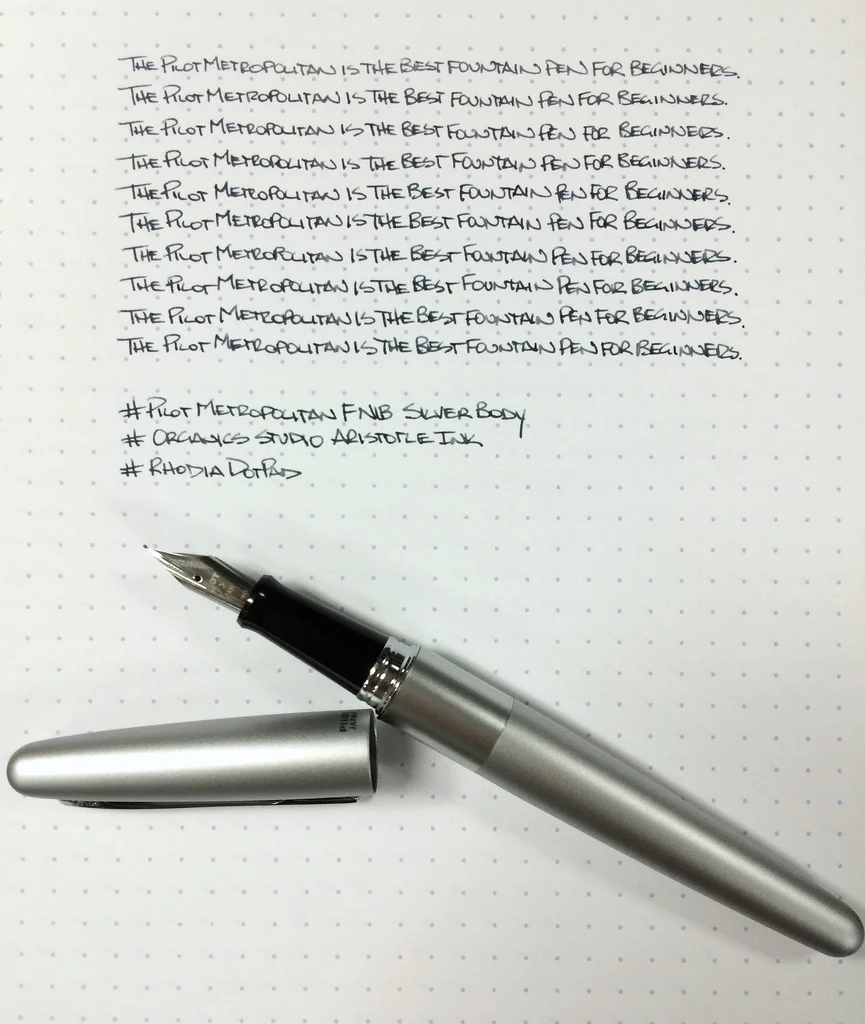 THE PILOT METROPOLITAN IS THE BEST FOUNTAIN PEN FOR BEGINNERS.
THE PILOT METROPOLITAN IS THE BEST FOUNTAIN PEN FOR BEGINNERS.
THE PILOT METROPOLITAN IS THE BEST FOUNTAIN PEN FOR BEGINNERS.
THE PILOT METROPOLITAN IS THE BEST FOUNTAIN PEN FOR BEGINNERS.
THE PILOT METROPOLITAN IS THE BEST FOUNTAIN PEN FOR BEGINNERS.
THE PILOT METROPOLITAN IS THE BEST FOUNTAIN PEN FOR BEGINNERS.
THE PILOT METROPOLITAN IS THE BEST FOUNTAIN PEN FOR BEGINNERS.
THE PILOT METROPOLITAN IS THE BEST FOUNTAIN PEN FOR BEGINNERS.
THE PILOT METROPOLITAN IS THE BEST FOUNTAIN PEN FOR BEGINNERS.
THE PILOT METROPOLITAN IS THE BEST FOUNTAIN PEN FOR BEGINNERS.
# PILOT METROPOLITAN F NIB SILVER BODY
# ORGANICS STUDIO ARISTOTLE INK
# RHODIA DOTPAD
PILOT
JAPAN